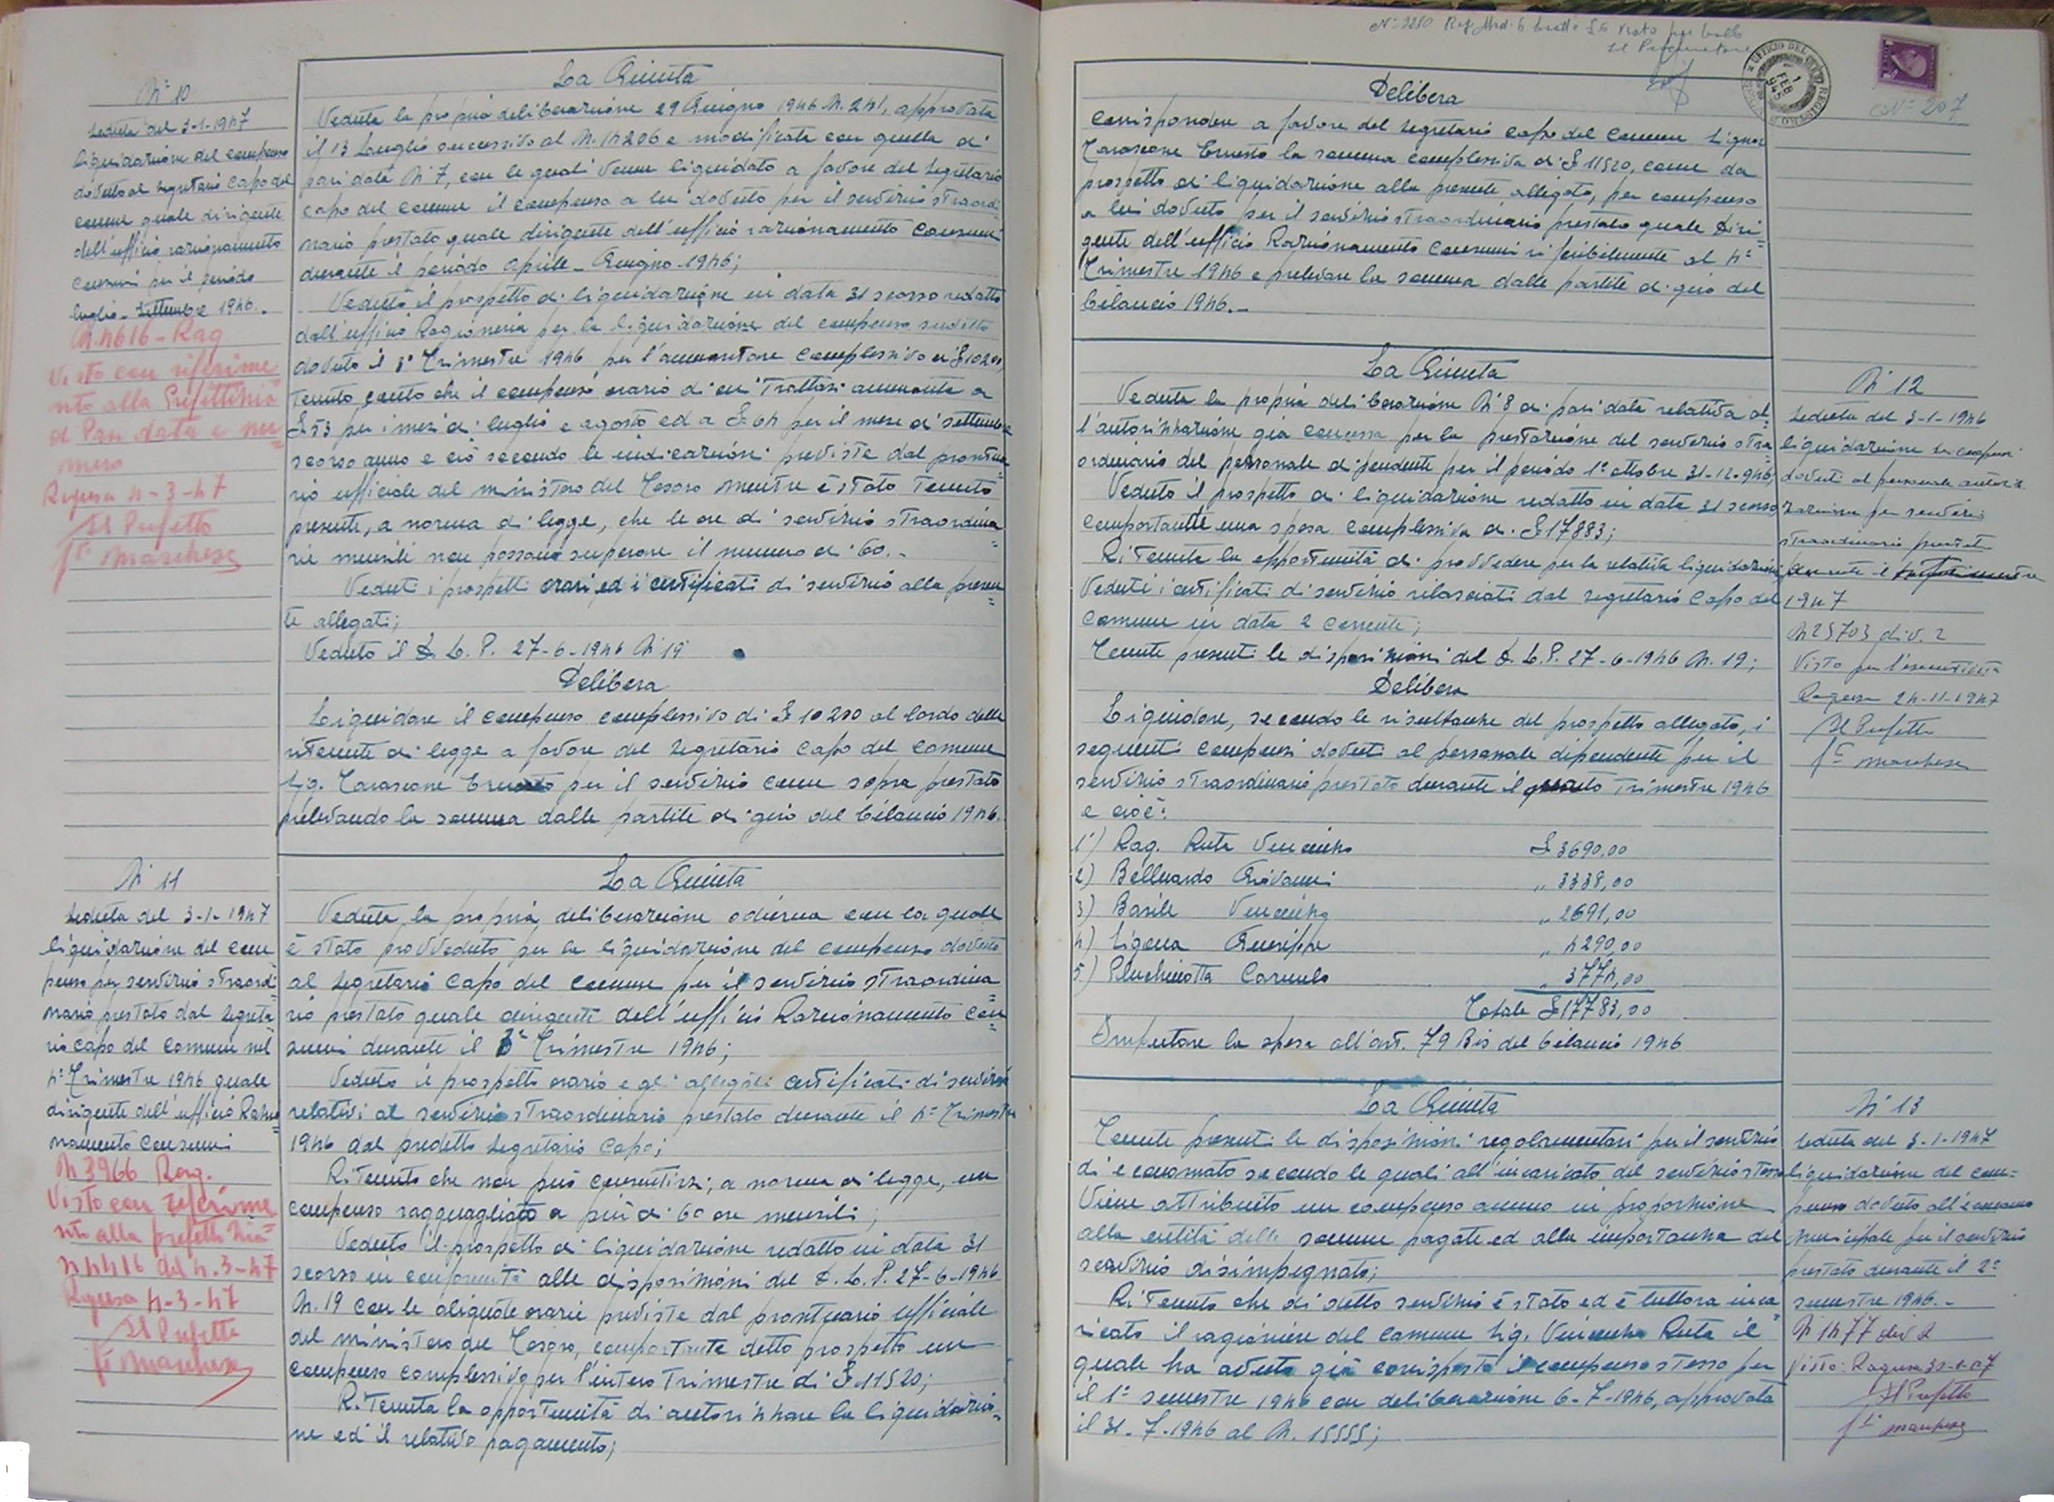 N° 10
Seduta del 3-1-1947
Liquidazione del compenso
dovuto al Segretario Capo del
comune quale dirigente
dell'ufficio razionamento
consumi per il periodo
luglio - Settembre 1946.-
N 4616 - Rag
Visto con riferime
nto alla Prefettizia
di Pari data e nu=
mero
Ragusa 4-3-47
Il Prefetto
fto Marchese
La Giunta
Veduta la propria deliberazione 29 Giugno 1946 N. 241, approvata
il 13 Luglio successivo al N. 14206 e modificata con quella di
pari data N 7, con le quali venne liquidato a favore del Segretario
capo del comune il compenso a lui dovuto per il servizio straordi
nario prestato quale dirigente dell'ufficio razionamento consumi
durante il periodo aprile - Giugno 1946;
Veduto il prospetto di liquidazione in data 31 scorso redatto
dall'ufficio Ragioneria per la liquidazione del compenso suddetto
dovuto il 3° Trimestre 1946 per l'ammontare complessivo di £ 10200,
Tenuto conto che il compenso orario di cui trattasi ammonta a
£ 53 per i mesi di luglio e agosto ed a £ 64 per il mese di settembre
scorso anno e ciò secondo le indicazioni previste dal prontua
rio ufficiale del ministero del Tesoro mentre è stato tenuto
presente, a norma di legge, che le ore di servizio straordina=
rie mensili non possono superare il numero di 60.-
Veduti i prospetti orari ed i certificati di servizio alla presen=
te allegati;
Veduto il D. L. P. 27-6-1946 N 19
Delibera
Liquidare il compenso complessivo di £ 10200 al lordo delle
ritenute di legge a favore del Segretario Capo del Comune
Sig. Carascone Ernesto per il servizio come sopra prestato
prelevando la somma dalle partite di giro del bilancio 1946.
N° 11
Seduta del 3-1-1947
Liquidazione del com=
penso per servizio straordi=
nario prestato dal Segreta=
rio capo del Comune nel
4° Trimestre 1946 quale
dirigente dell'ufficio Razio=
namento Consumi
N 3966 Rag.
Visto con riferime
nto alla prefettizia
N 4416 del 4-3-47
Ragusa 4-3-47
Il Prefetto
fto Marchese
La Giunta
Veduta la propria deliberazione odierna con la quale
è stato provveduto per la liquidazione del compenso dovuto
al Segretario Capo del Comune per il servizio straordina=
rio prestato quale dirigente dell'ufficio Razionamento Con=
sumi durante il 3° Trimestre 1946;
Veduto il prospetto orario e gli allegati certificati di servizio
relativi al servizio straordinario prestato durante il 4° Trimestre
1946 dal predetto Segretario Capo;
Ritenuto che non può consentirsi, a norma di legge, un
compenso ragguagliato a più di 60 ore mensili;
Veduto il prospetto di liquidazione redatto in data 31
scorso in conformità alle disposizioni del D. L. P. 27-6-1946
N. 19 con le aliquote orarie previste dal prontuario ufficiale
del ministero del Tesoro, comportante detto prospetto un
compenso complessivo per l'intero Trimestre di £ 11520;
Ritenuta la opportunità di autorizzare la liquidazio=
ne ed il relativo pagamento;
Il Procuratore
N° 207
Delibera
Corrispondere a favore del Segretario capo del Comune Signor
Carascone Ernesto la somma complessiva di £ 11520, come da
prospetto di liquidazione alla presente allegato, per compenso
a lui dovuto per il servizio straordinario prestato quale Diri=
gente dell'ufficio Razionamento Consumi riferibilmente al 4°
Trimestre 1946 e prelevare la somma dalle partite di giro del
bilancio 1946.-
La Giunta
Veduta la propria deliberazione N° 8 di pari data relativa al
l'autorizzazione già concessa per la prestazione del servizio stra=
ordinario del personale dipendente per il periodo 1° ottobre 31-12-946,
Veduto il prospetto di liquidazione redatto in data 31 scorso,
comportante una spesa complessiva di £ 17883;
Ritenuta la opportunità di provvedere per la relativa liquidazione
Veduti i certificati di servizio rilasciati dal segretario Capo del
Comune in data 2 corrente;
Tenute presenti le disposizioni del D. L. P. 27-6-1946 N. 19;
Delibera
Liquidare, secondo le risultanze del prospetto allegato, i
seguenti compensi dovuti al personale dipendente per il
servizio straordinario prestato durante il quarto Trimestre 1946
e cioè:
1°) Rag. Ruta Vincenzo £ 3690,00
2) Belluardo Giovanni " 3338,00
3) Basile Vincenzo " 2691,00
4) Ligona Giuseppe " 4290,00
5) Pluchinotta Carmelo " 3774,00
Totale £ 17783,00
Imputare la spesa all'art. 79 Bis del bilancio 1946
N° 12
Seduta del 3-1-1946
Liquidazione dei compensi
dovuti al personale
per servizio
straordinario prestato
durante il
1947
N 25703 div. 2
Visto per l'esecutività
Ragusa 24-11-1947
Il Prefetto
fto Marchese
La Giunta
Tenute presenti le disposizioni regolamentari per il servizio
di economato secondo le quali all'incaricato del servizio stesso
viene attribuito un compenso annuo in proporzione
alla entità delle somme pagate ed alla importanza del
servizio disimpegnato;
Ritenuto che di detto servizio è stato ed è tuttora inca=
ricato il ragioniere del Comune Sig. Vincenzo Ruta il
quale ha avuto già corrisposto il compenso stesso per
il 1° semestre 1946 con deliberazione 6-7-1946, approvata
il 31-7-1946 al N. 15555;
N° 13
Seduta del 3-1-1947
Liquidazione del com=
penso dovuto all'economo
municipale per il servizio
prestato durante il 2°
semestre 1946.-
N° 1477 div 2
Visto: Ragusa
Il Prefetto
fto Marchese